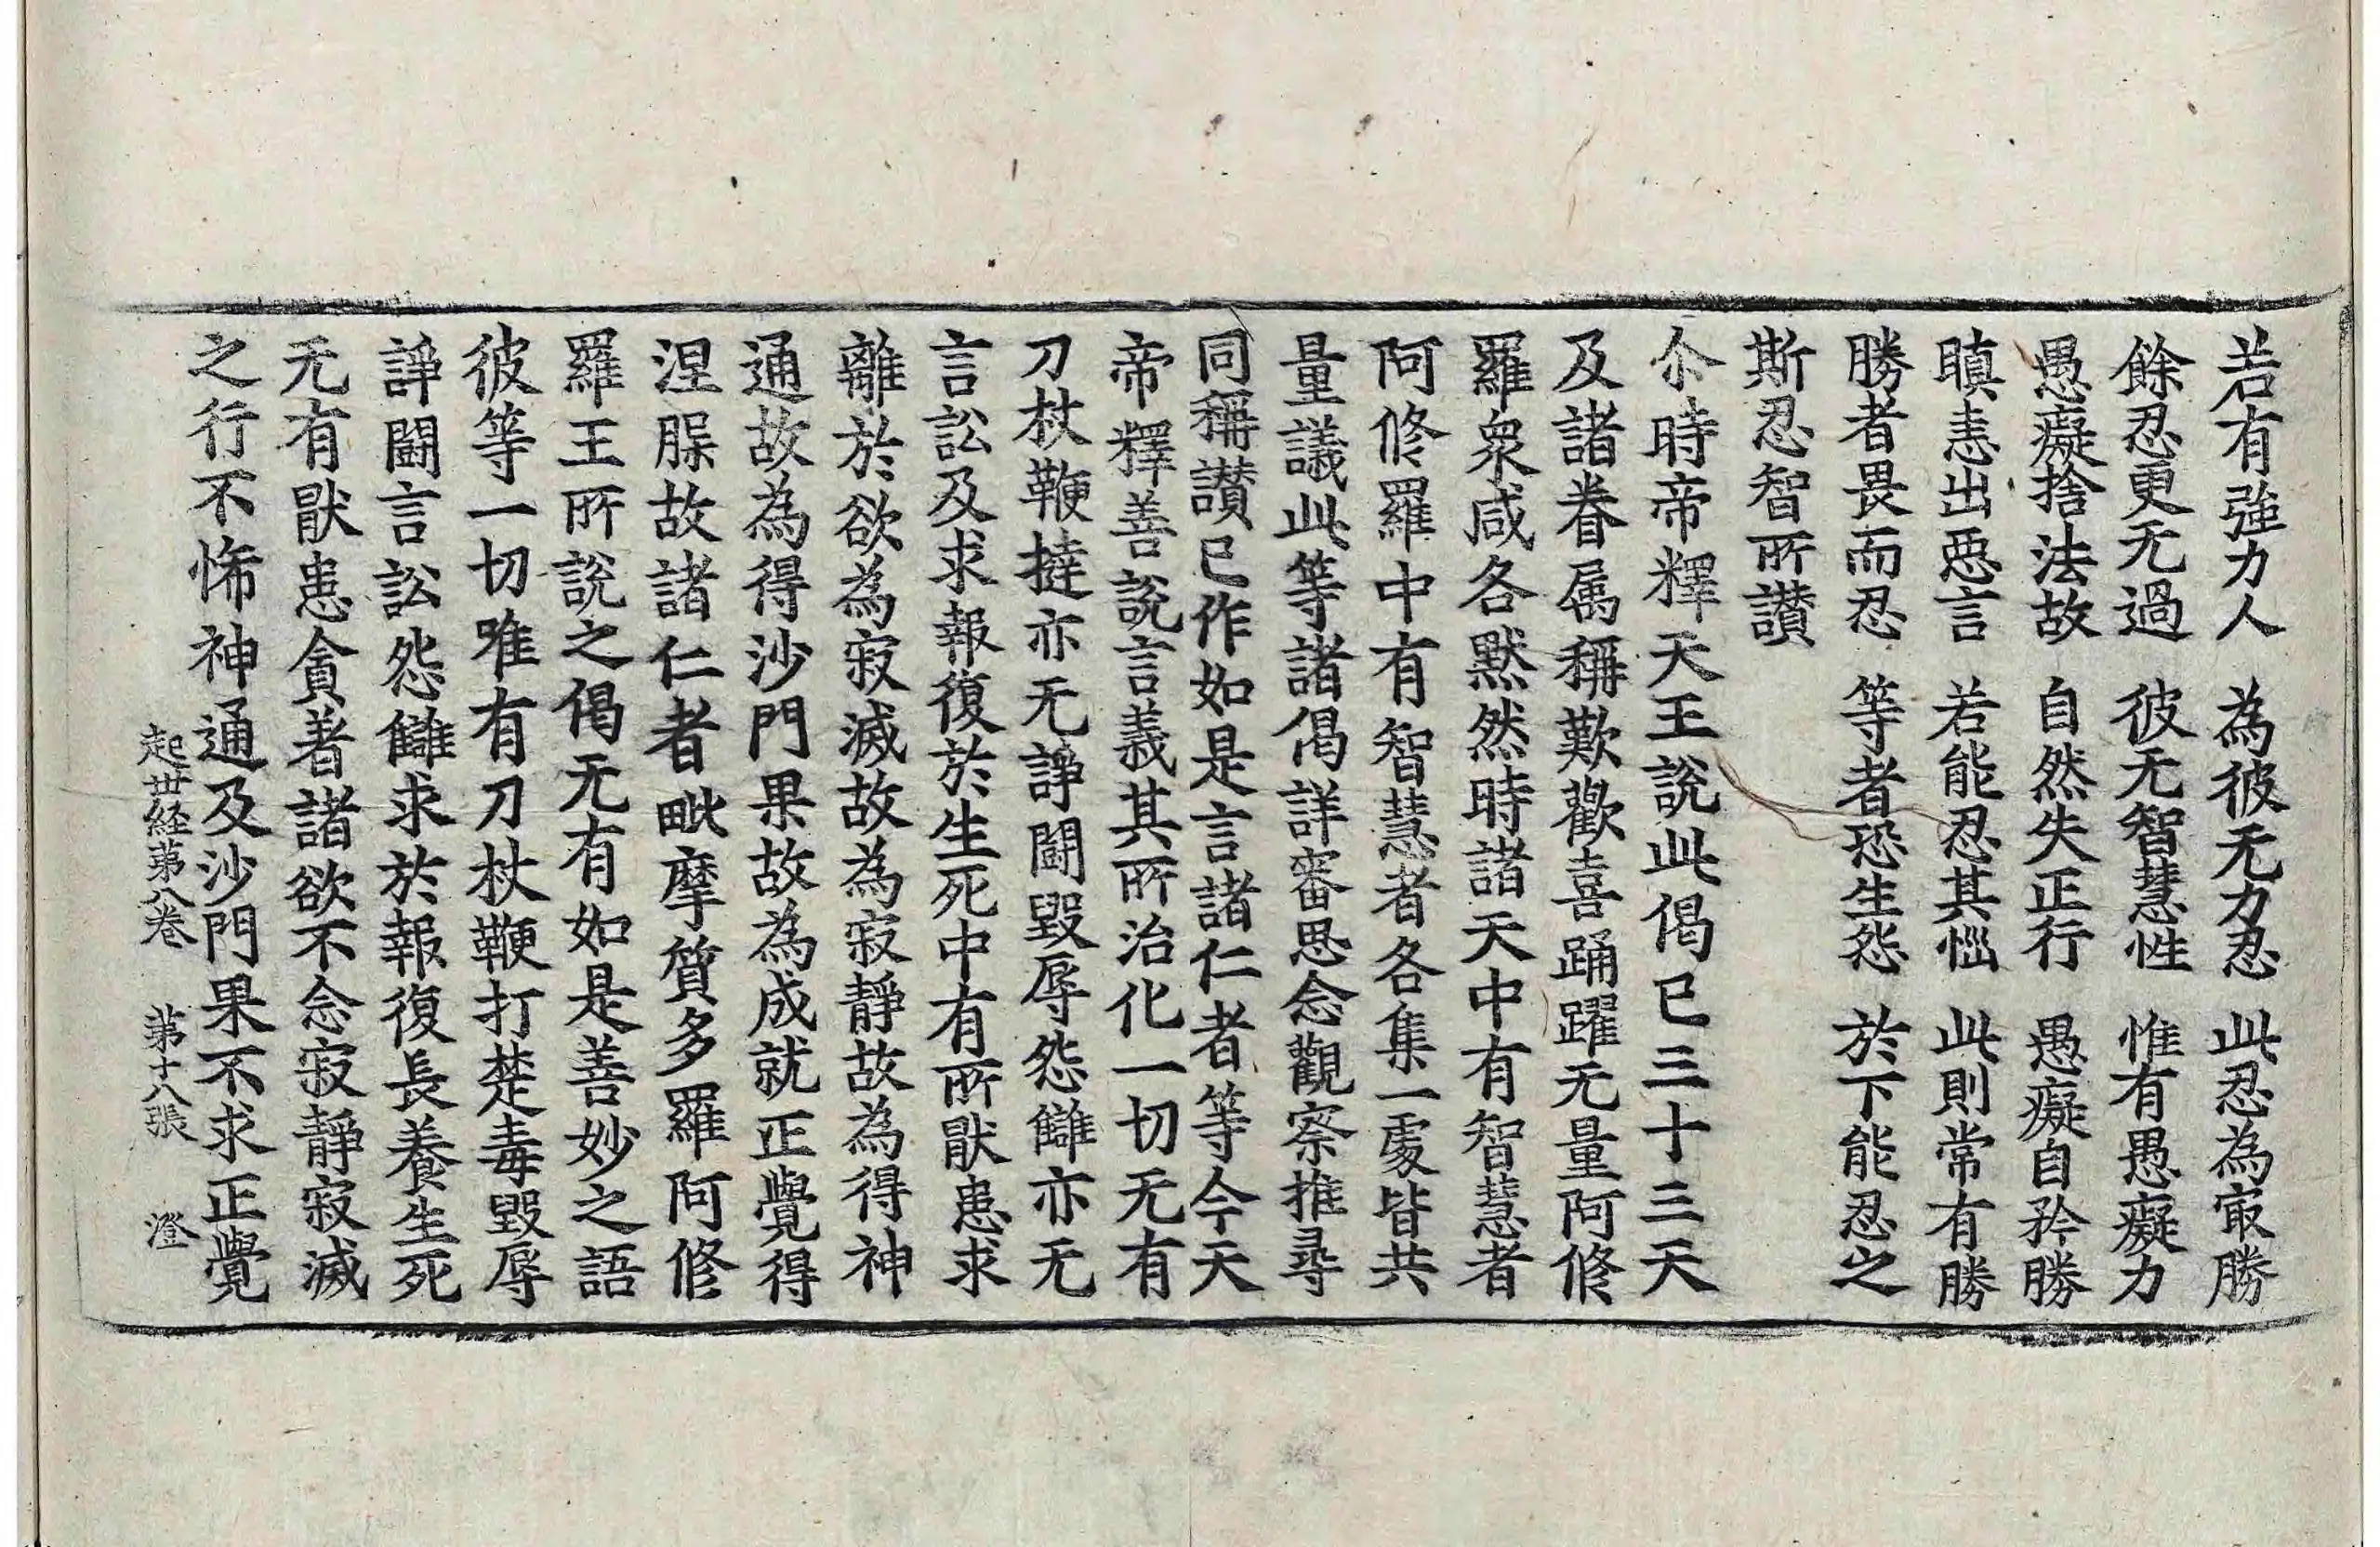 若有強力人　為彼无力忍　此忍為㝡勝
餘忍更无過　彼无智慧性　惟有愚癡力
愚癡捨法故　自然失正行　愚癡自矜勝
瞋恚出惡言　若能忍其惱　此則常有勝
勝者畏而忍　等者恐生怨　於下能忍之
斯忍智所讃
尒時帝釋天王說此偈已三十三天
及諸眷属稱歎歡喜踊躍无量阿修
羅衆咸各默然時諸天中有智慧者
阿修羅中有智慧者各集一處皆共
量議此等諸偈詳審思念觀察推尋
同稱讃已作如是言諸仁者等今天
帝釋善說言義其所治化一切无有
刀杖鞭撻亦无諍鬪毀辱怨讎亦无
言訟及求報復於生死中有所猒患求
離於欲為寂滅故為寂靜故為得神
通故為得沙門果故為成就正覺得
涅槃故諸仁者毗摩質多羅阿修
羅王所說之偈无有如是善妙之語
彼等一切唯有刀杖鞭打楚毒毀辱
諍鬪言訟怨讎求於報復長養生死
无有猒患貪著諸欲不念寂靜寂滅
之行不悕神通及沙門果不求正覺
起世経第八卷　第十八張　澄